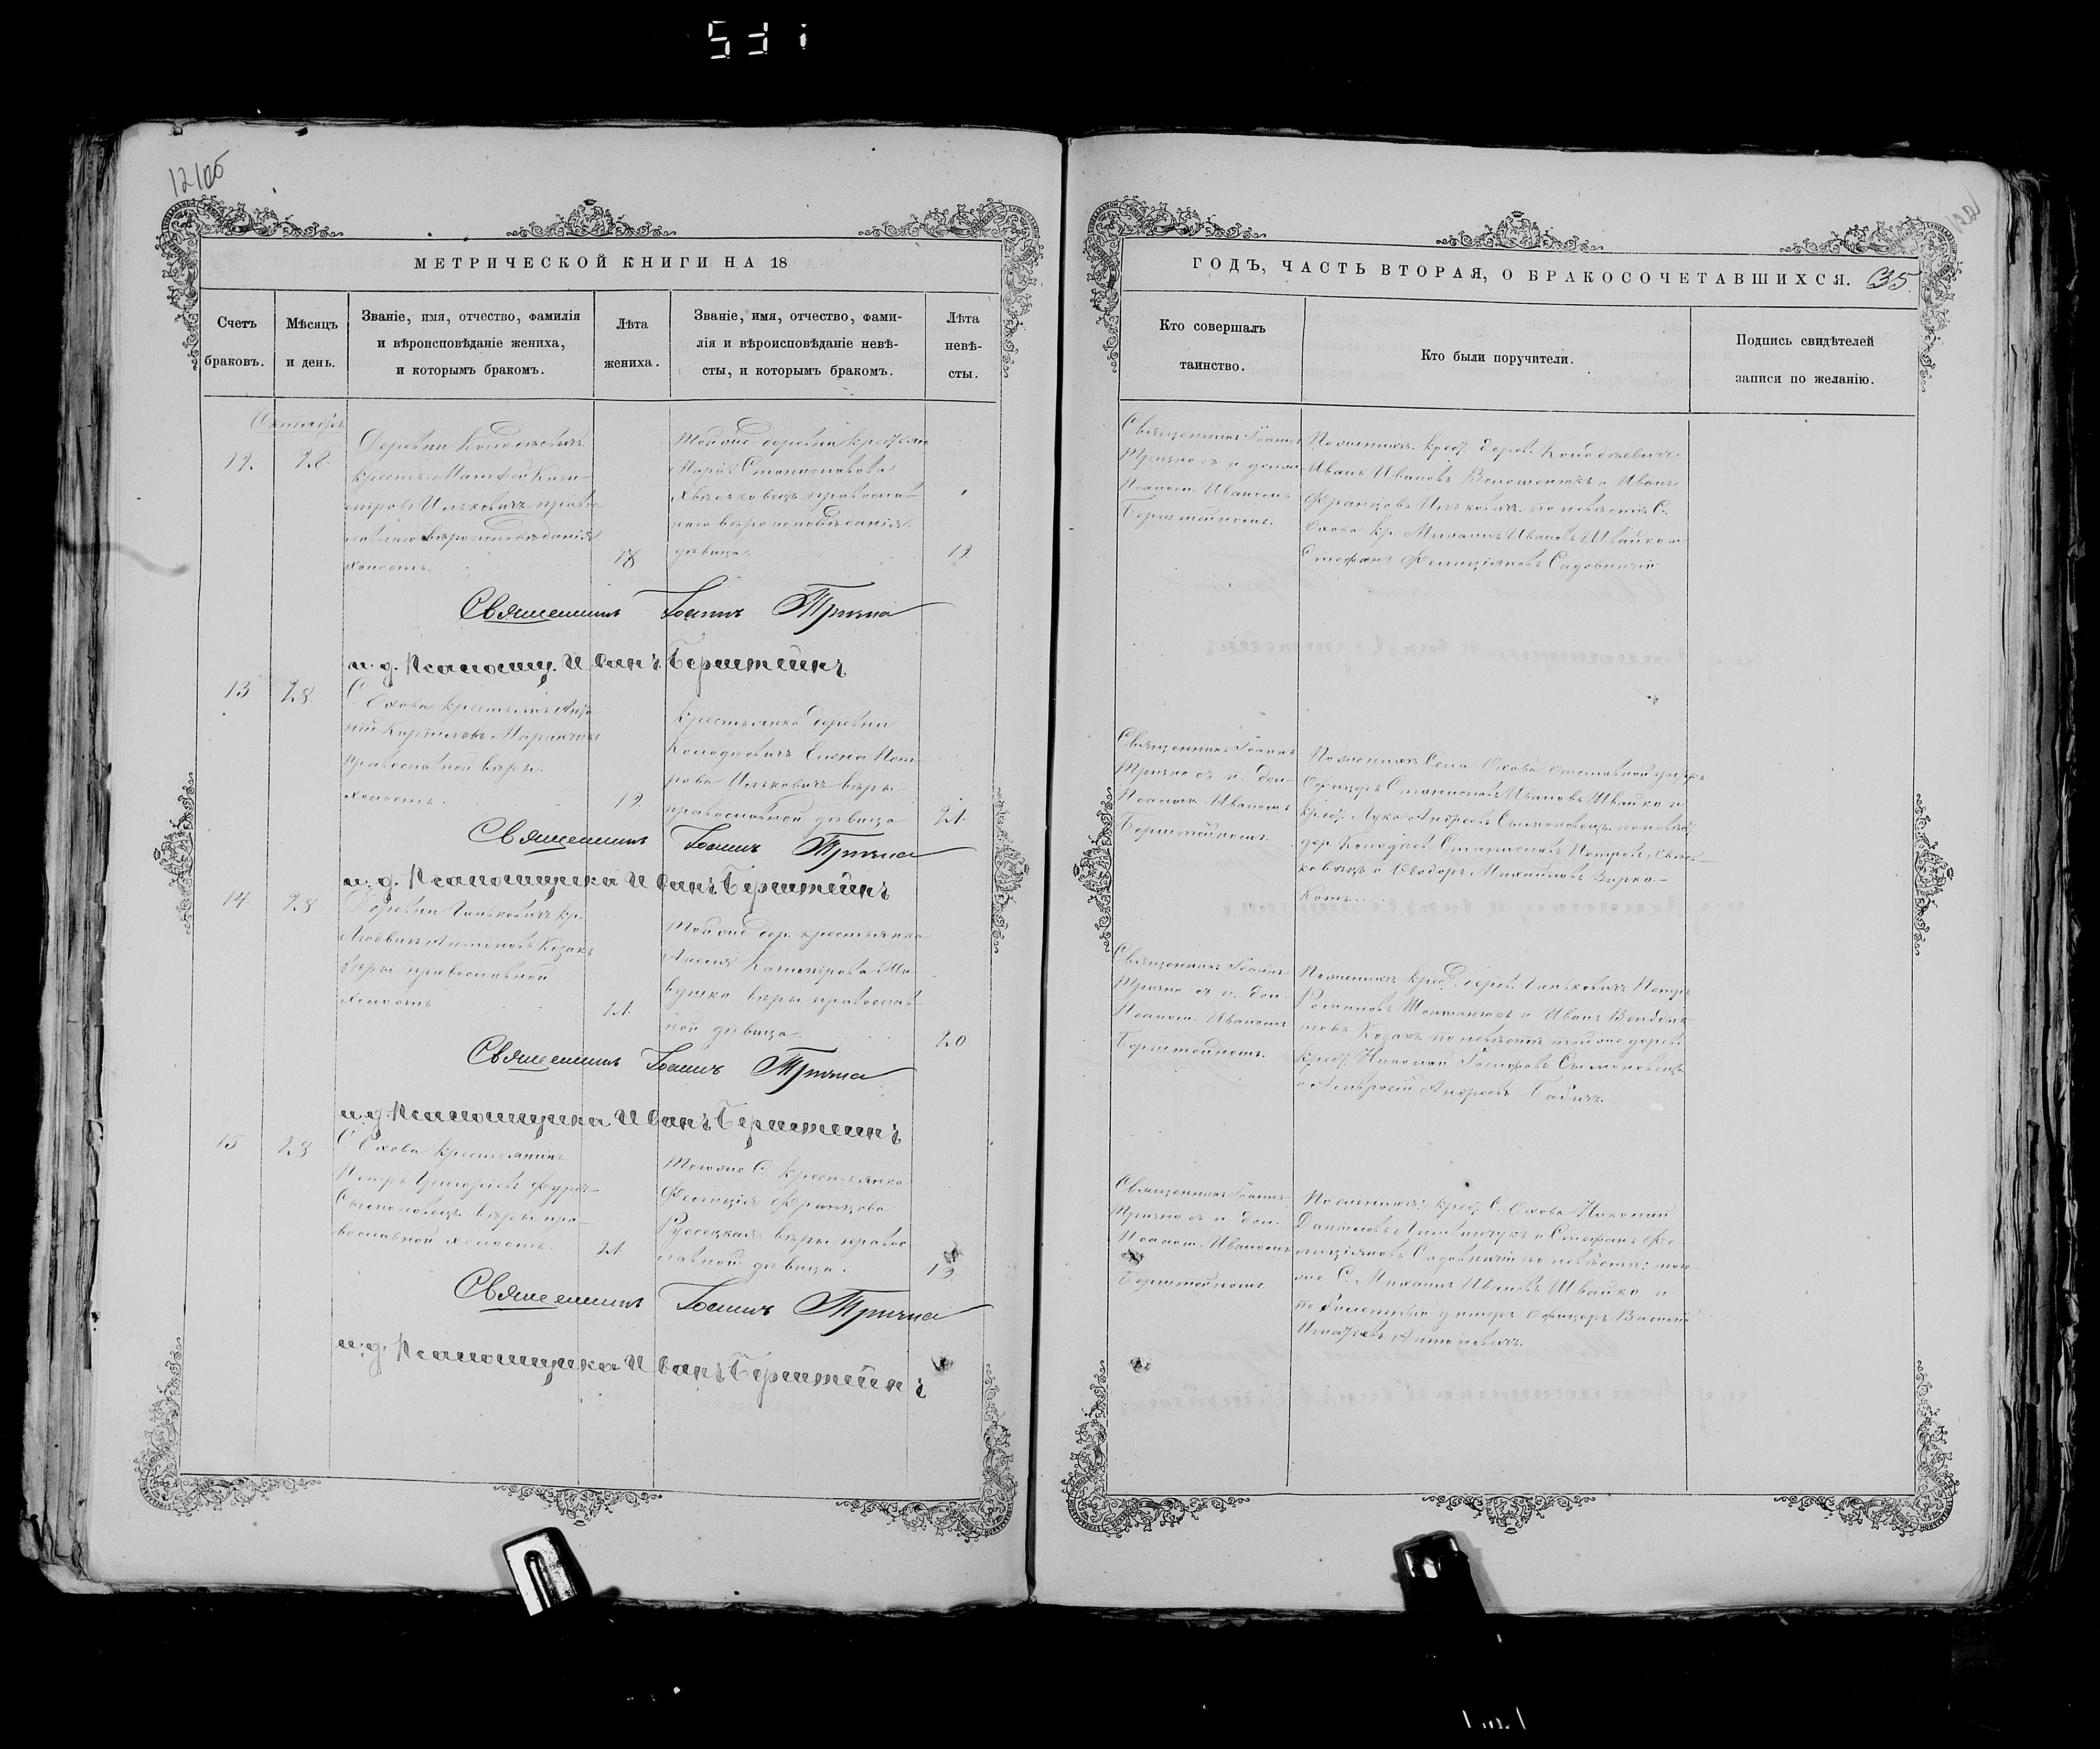 12 об
МЕТРИЧЕСКОЙ КНИГИ НА 18
Счетъ браковъ.
Мѣсяцъ и день.
Званіе, имя, отчество, фамилія
и вѣроисповѣданіе жениха,
и которымъ бракомъ.
Лѣта жениха.
Званіе, имя, отчество, фами-
лія и вѣроисповѣданіе невѣ-
сты, и которымъ бракомъ.
Лѣта невѣ-
сты.
Октябрь
12. 28.
Деревни
крест. Матфей Кази-
міровъ Ильковичъ правос-
лавнаго вѣроисповѣданія
холостъ.
18
Той же деревни крестьян
Марія Станиславова
православ-
наго вѣроисповѣданія
дѣвица.
19
Священникъ Іоаннъ Тричка
и. д. Псаломщ. Иванъ Берштейнъ
13 28.
С. Охова крестьянинъ
православной вѣры.
холостъ.
19
Крестьянка деревни
Колодіевичъ Елена Пет-
рова Ильковичъ вѣры
православной дѣвица
21.
Священникъ Іоаннъ Тричка
и. д. Псаломщика Иванъ Берштейнъ
14. 28
Деревни Ганьковичъ кр.
Людвикъ Антоновъ Козакъ
вѣры православной
холостъ
21.
Той же дер. крестьянка
Казимірова
вѣры православ
ной дѣвица.
20
Священникъ Іоаннъ Тричка
и. д. Псаломщика Иванъ Берштейнъ
15 28
С. Охова крестьянинъ
Петръ Григорьевъ
вѣры пра-
вославной холостъ.
21
Тогоже С. крестьянка
Фелиція Францова
Русецкая вѣры правос
лавной дѣвица.
19
Священникъ Іоаннъ Тричка
и. д. Псаломщика Иванъ Берштейнъ
ГОДЪ, ЧАСТЬ ВТОРАЯ, О БРАКОСОЧЕТАВШИХСЯ. 35
Кто совершалъ
таинство.
Кто были поручители.
Подпись свидѣтелей
записи по желанію.
Священникъ Іоаннъ
Тричка съ и. долж
Псалом. Иваномъ
Берштейномъ.
По женихѣ крест. дерев.
Иванъ Ивановъ и Иванъ
Францовъ Ильковичъ. по невѣстѣ С.
Охова кр. Михаилъ Ивановъ Швайко и
Стефанъ Фелиціяновъ Садовничій
Священникъ Іоаннъ
Тричка съ и. дол.
Псалом. Иваномъ
Берштейномъ.
По женихѣ Села Охова отставной унтеръ
Офицеръ Станиславъ Ивановъ Швайко и
крест. Лука Андреевъ Сымоновецъ. по невѣс
дер. Станиславъ Петровъ
и Ѳеодоръ Михайловъ
Священникъ Іоаннъ
Тричка съ и. дол.
Псалом. Иваномъ
Берштейномъ.
По женихѣ крест. дерев. Ганьковичъ Петръ
Романовъ и Иванъ
Козакъ. по невѣстѣ той же дерев.
крест. Николай Іосифовъ Сымоновецъ
и Амвросій Андреевъ Бабичъ.
Священникъ Іоаннъ
Тричка съ и. дол.
Псалом. Иваномъ
Берштейномъ
По женихѣ: крест. С. Охова Николай
Даниловъ и Стефанъ Фе-
лиціяновъ Садовничій по невѣстѣ: того
же С. Михаилъ Ивановъ Швайко и
унтеръ офицеръ Василій
Игнатьевъ Антоновичъ.